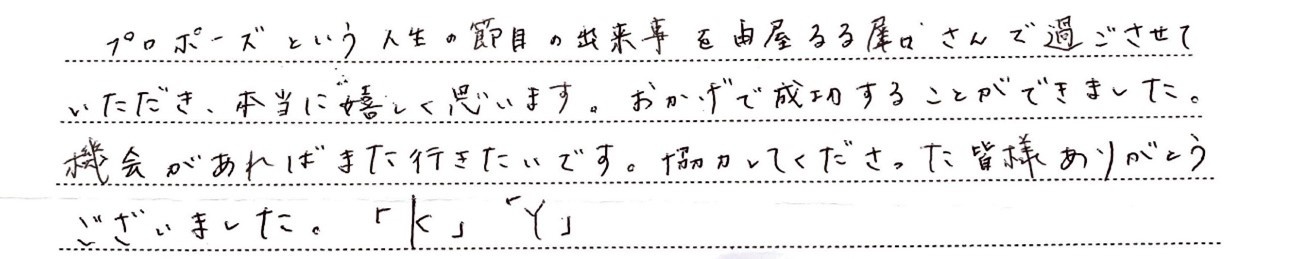 プロポーズという人生の節目の出来事を由屋るる犀口さんで過ごさせて
いただき、本当に嬉しく思います。おかげで成功することができました。
機会があればまた行きたいです。協力してくださった皆様ありがとう
ございました。「K」「Y」